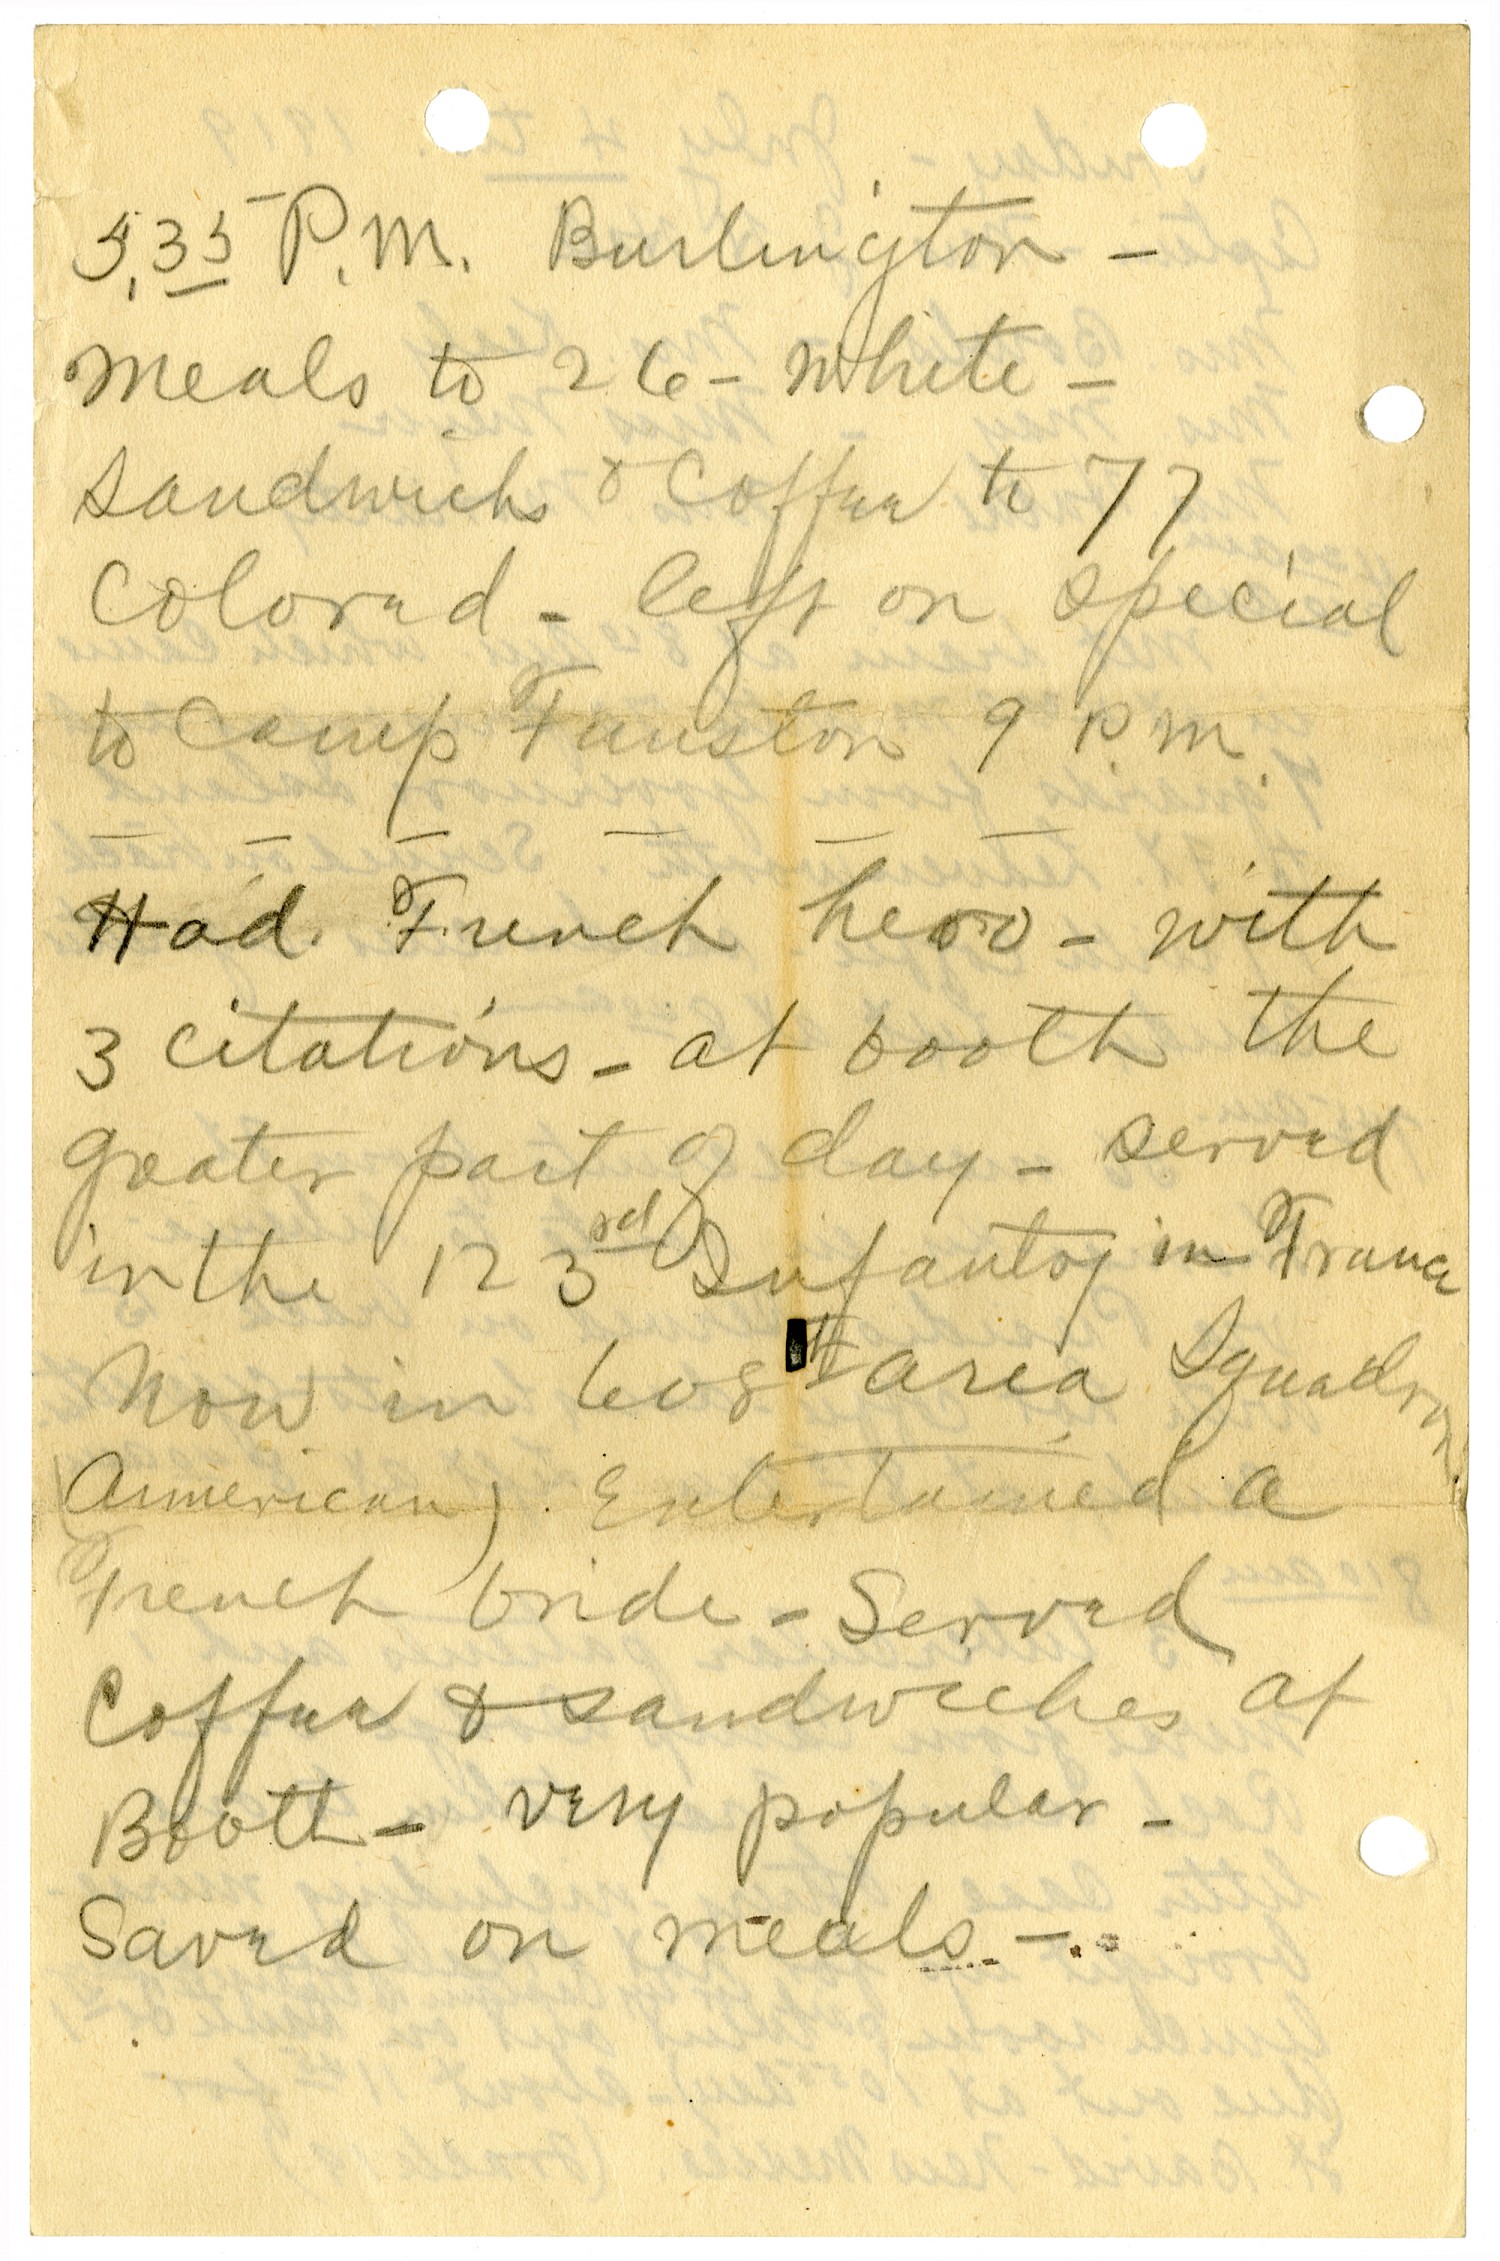 5,35 P.M. Burlington -
Meals to 26 - White -
Sandwichs & Coffee to 77
Colored - left on special
to Camp Funston 9 P.M.
Had French hero - with
3 citations - at booth the
greater part of day - served
in the 123rd Infantry in France
Now in 608th area Squadron
(American) Entertained a
French bride - Served
Coffee & sandwiches at
Booth - very popular -
Saved on meals -